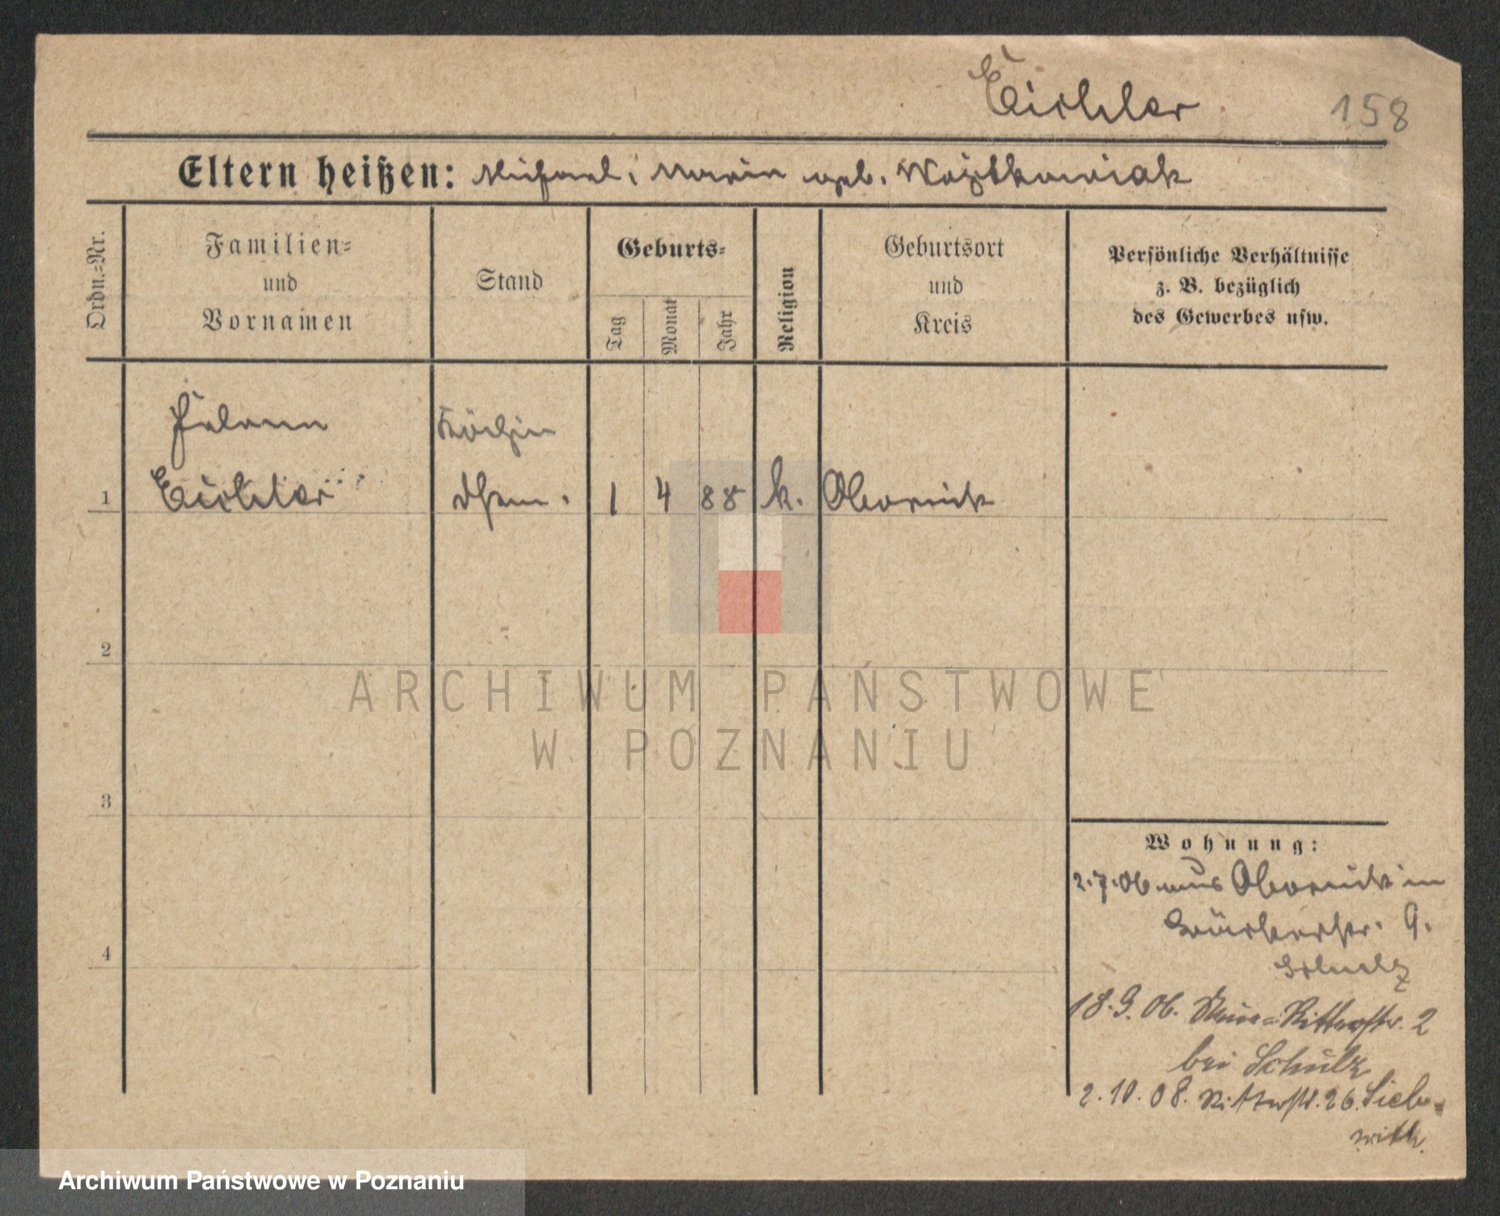 Eichler
158
Eltern heißen: Michael, Maria geb. Woytkowiak
Ordn.=Nr.
Familien=
und
Vornamen
Stand
Geburts=
Tag
Monat
Jahr
Religion
Geburtsort
und
Kreis
Persönliche Verhältnisse
z. B. bezüglich
des Gewerbes usw.
Helena Köchin
1 Eichler 1 4 88 k. Obornik
2
ARCHIWUM PAŃSTWOWE
W POZNANIU
3
Wohnung:
2.7.06 aus Obornik in
9.
Schulz
4
18.9.06. Ritterstr. 2
bei Schulz
2.10.08. Ritterstr. 26.
Archiwum Państwowe w Poznaniu